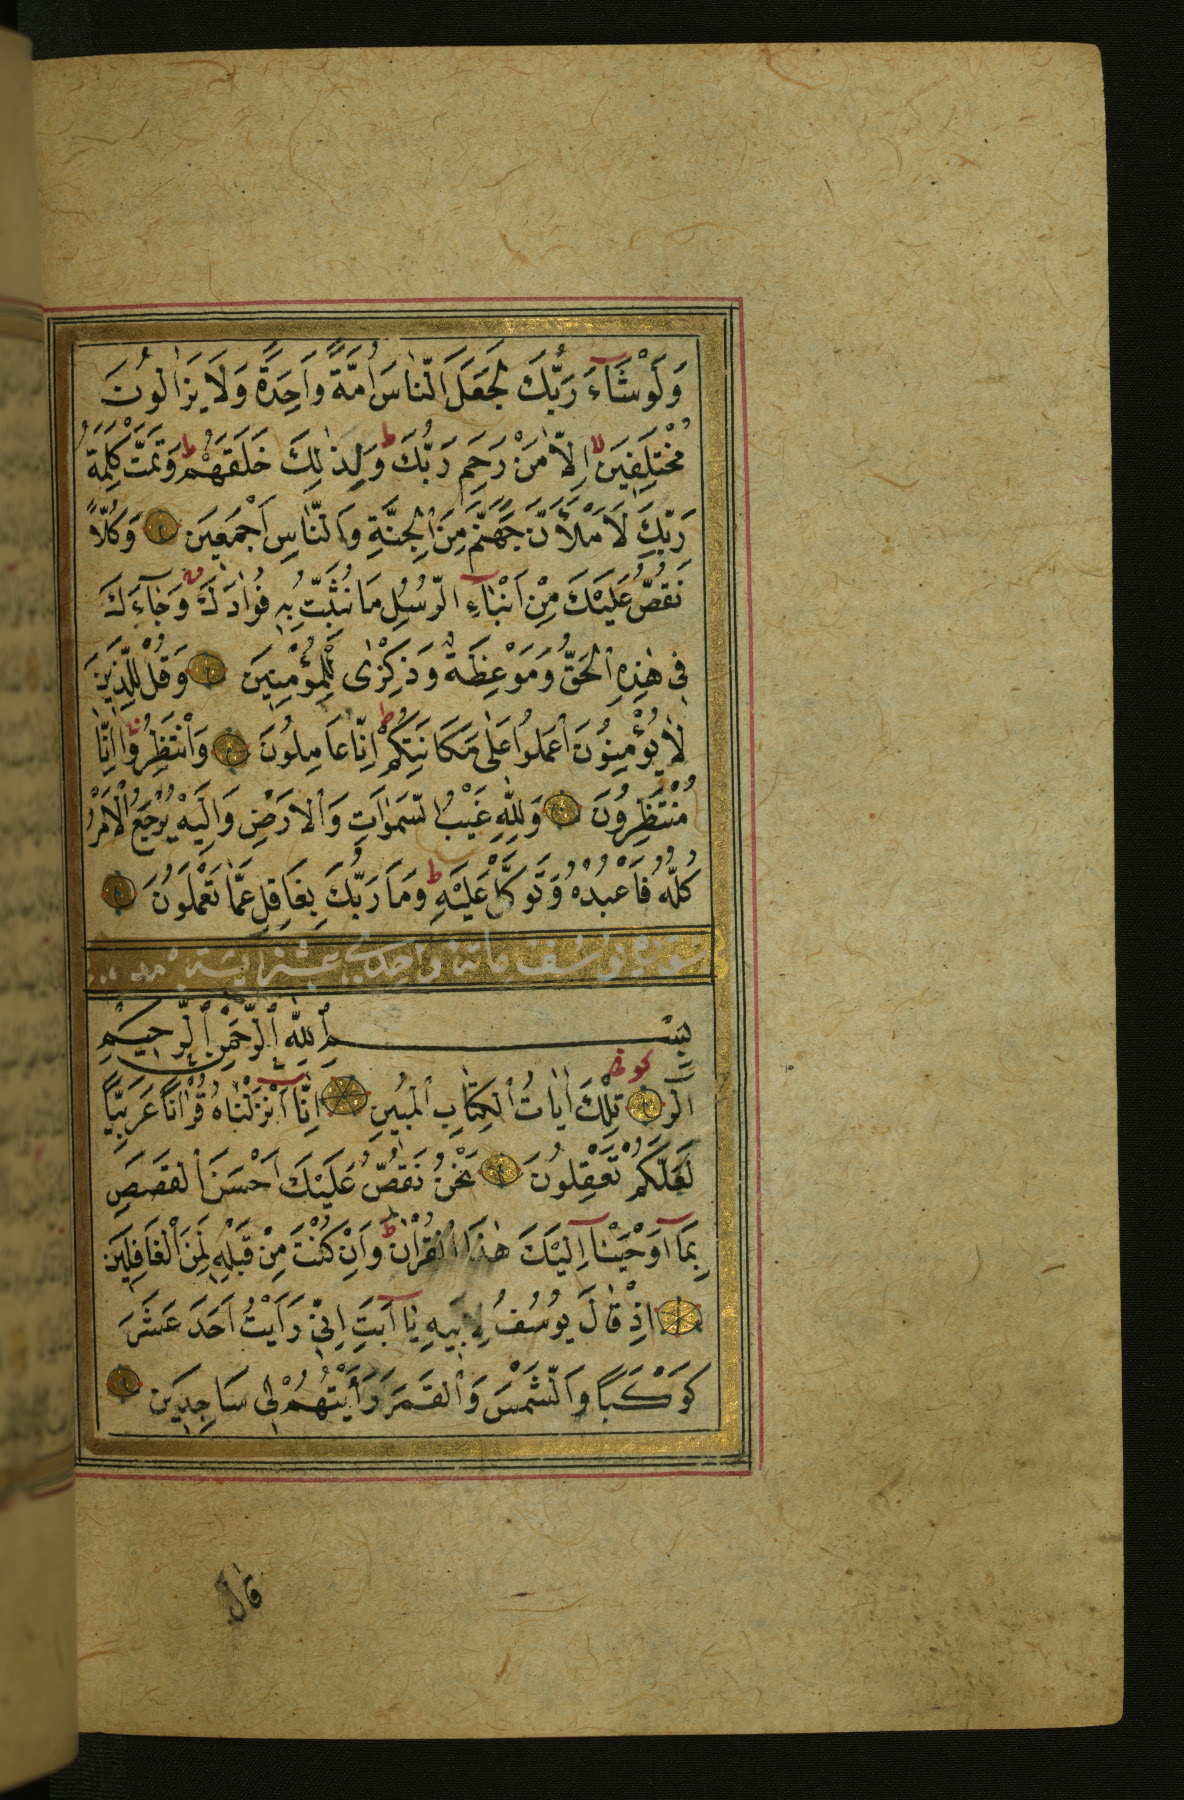 وَلَوْ شَآءَ رَبُّكَ لَجَعَلَ النَّاسَ اُمَّةً وَاحِدَةً وَلَا يَزَالُونَ
مُخْتَلِفِينَ لا اِلَّا مَنْ رَحِمَ رَبُّكَ ط وَلِذٰلِكَ خَلَقَهُمْ ط وَتَمَّتْ كَلِمَةُ
رَبِّكَ لَاَمْلَأَنَّ جَهَنَّمَ مِنَ الْجِنَّةِ وَالنَّاسِ اَجْمَعِينَ وَكُلًّا
نَقُصُّ عَلَيْكَ مِنْ اَنْبَآءِ الرُّسُلِ مَا نُثَبِّتُ بِهِ فُؤَادَكَ وَجَآءَكَ
فِى هٰذِهِ الْحَقُّ وَمَوْعِظَةٌ وَذِكْرٰى لِلْمُؤْمِنِينَ وَقُلْ لِلَّذِينَ
لَا يُؤْمِنُونَ اعْمَلُوا عَلٰى مَكَانَتِكُمْ ط اِنَّا عَامِلُونَ وَانْتَظِرُوا اِنَّا
مُنْتَظِرُونَ وَلِلّٰهِ غَيْبُ السَّمٰوَاتِ وَالْاَرْضِ وَاِلَيْهِ يُرْجَعُ الْاَمْرُ
كُلُّهُ فَاعْبُدْهُ وَتَوَكَّلْ عَلَيْهِ ط وَمَا رَبُّكَ بِغَافِلٍ عَمَّا تَعْمَلُونَ
سورة يوسف مائة واحدى عشر
بِسْمِ اللّٰهِ الرَّحْمٰنِ الرَّحِيمِ
كوفى
الٓرٰ تِلْكَ اٰيَاتُ الْكِتَابِ الْمُبِينِ اِنَّآ اَنْزَلْنَاهُ قُرْاٰنًا عَرَبِيًّا
لَعَلَّكُمْ تَعْقِلُونَ نَحْنُ نَقُصُّ عَلَيْكَ اَحْسَنَ الْقَصَصِ
بِمَآ اَوْحَيْنَآ اِلَيْكَ هٰذَا الْقُرْاٰنَ ط وَاِنْ كُنْتَ مِنْ قَبْلِهِ لَمِنَ الْغَافِلِينَ
اِذْ قَالَ يُوسُفُ لِاَبِيهِ يَآ اَبَتِ اِنِّى رَاَيْتُ اَحَدَ عَشَرَ
كَوْكَبًا وَالشَّمْسَ وَالْقَمَرَ رَأَيْتُهُمْ لِى سَاجِدِينَ
قَالَ